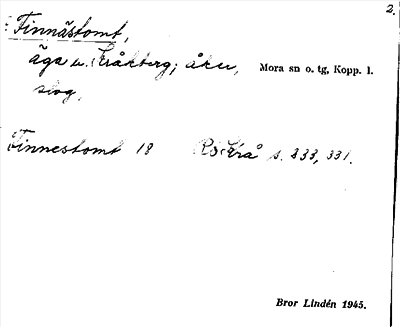 2.
: Finnästomt,
äga u. Kråkberg; åker, Mora sn o. tg, Kopp. l.
slog.
Finnestomt 18 Rö Krå s. 333, 331.
Bror Lindén 1945.